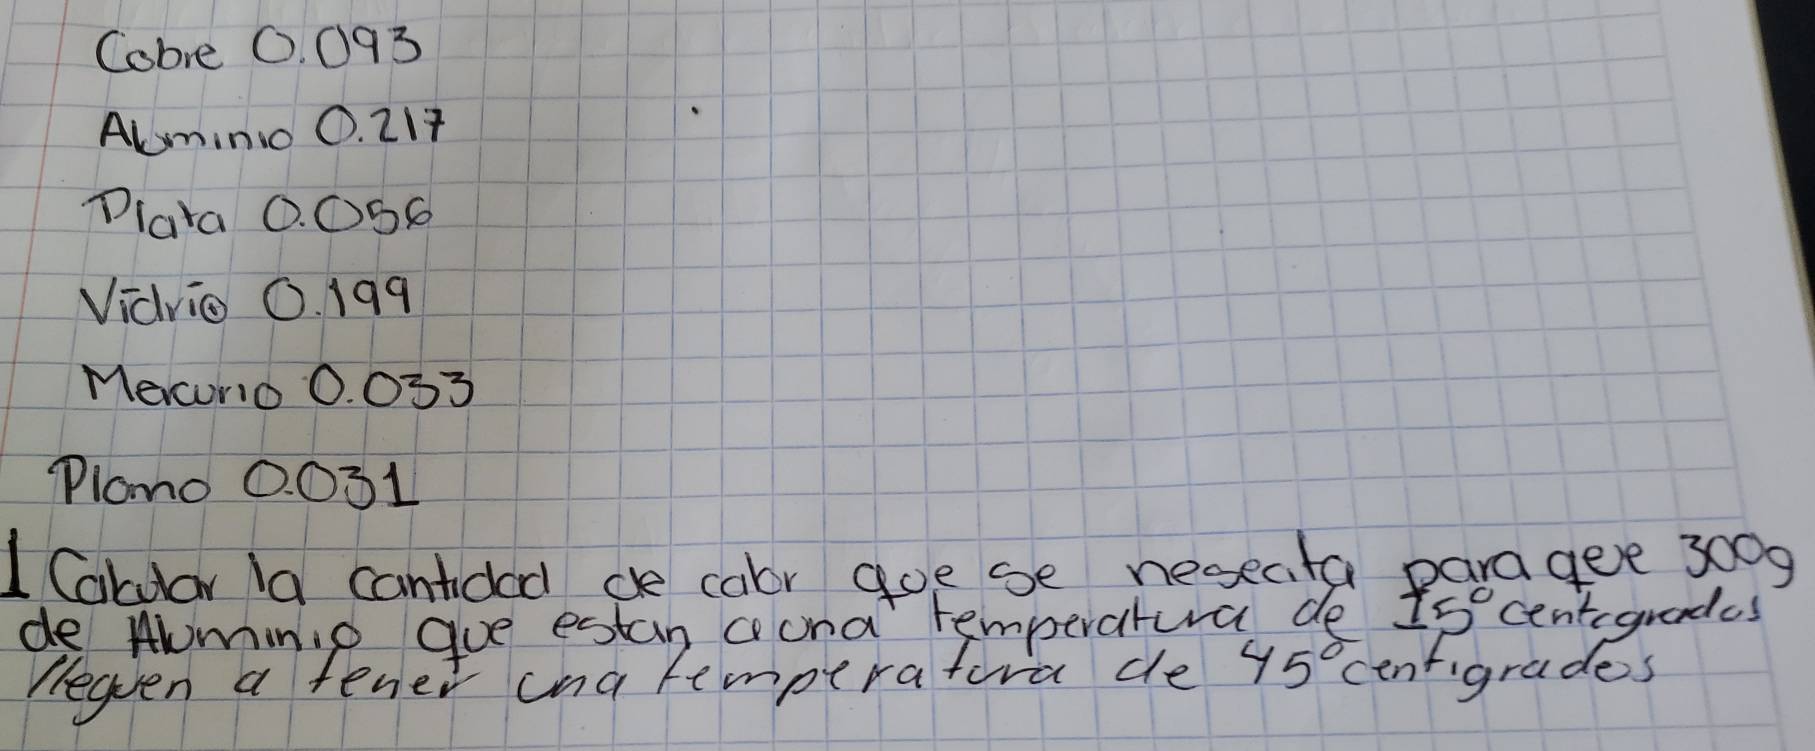 Cobre 0.093
Aluminio 0.217
Plata 0.056
Vidrio 0.199
Mercurio 0.033
Plomo 0.031
1 Calcular la cantidad de calor que se nesecita para que 300g
de Aluminio que estan a una temperatura de 15° centigrados
lleguen a tener una temperatura de 45° centigrados